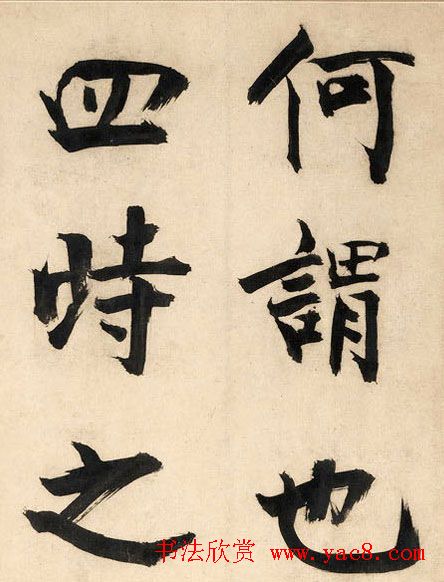 何謂也
四時之
书法欣赏 www.yac8.com